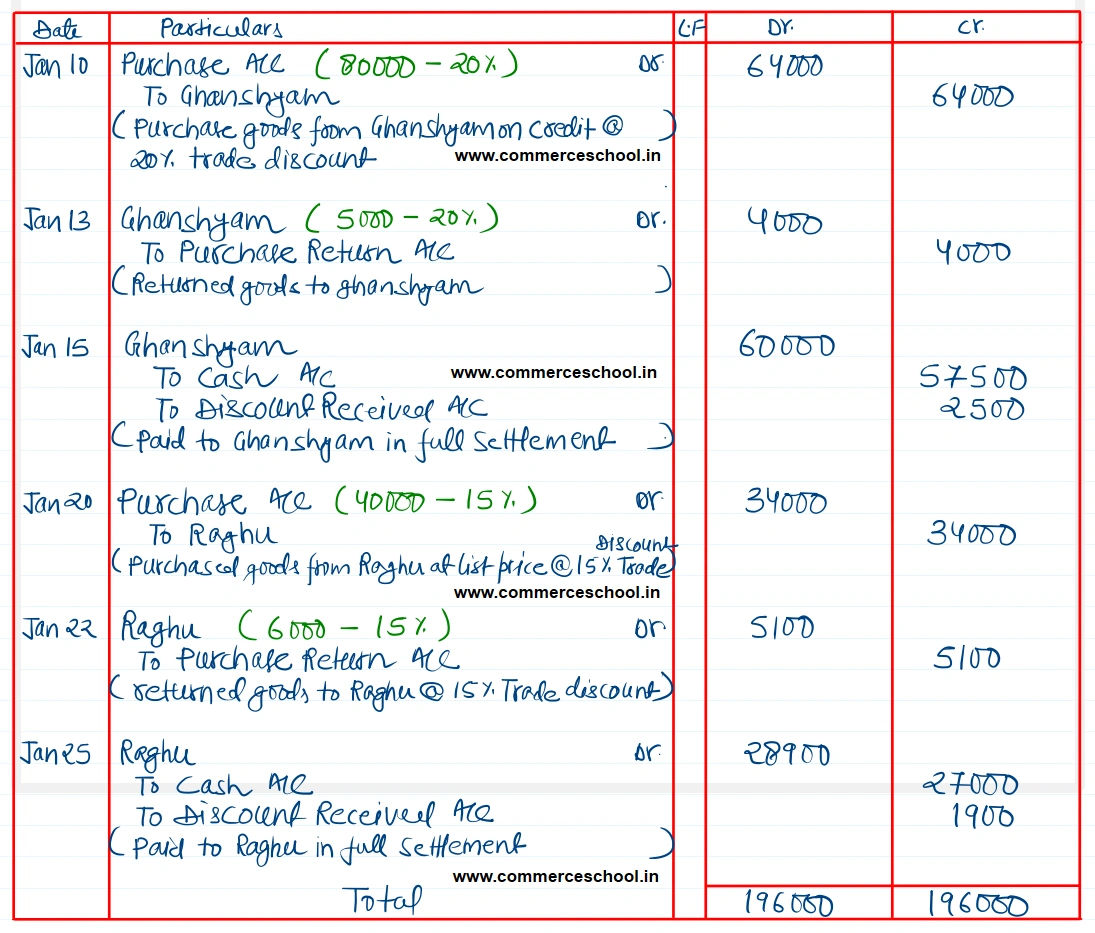 Date Particulars L.F Dr. Cr.
Jan 10 Purchase A/C (80000 - 20%) Dr. 64000
To Ghanshyam 64000
(Purchase goods from Ghanshyam on credit @ )
20% trade discount www.commerceschool.in
Jan 13 Ghanshyam (5000 - 20%) Dr. 4000
To Purchase Return A/C 4000
(Returned goods to ghanshyam )
Jan 15 Ghanshyam 60000
To Cash A/C www.commerceschool.in 57500
To Discount Received A/C 2500
(Paid to Ghanshyam in full Settlement )
Jan 20 Purchase A/C (40000 - 15%) Dr. 34000
To Raghu 34000
Discount
(Purchased goods from Raghu at list price @ 15% Trade)
www.commerceschool.in
Jan 22 Raghu (6000 - 15%) Dr 5100
To Purchase Return A/C 5100
(returned goods to Raghu @ 15% Trade discount)
Jan 25 Raghu Dr. 28900
To Cash A/C 27000
To Discount Received A/C 1900
(Paid to Raghu in full Settlement )
www.commerceschool.in
Total 196000 196000